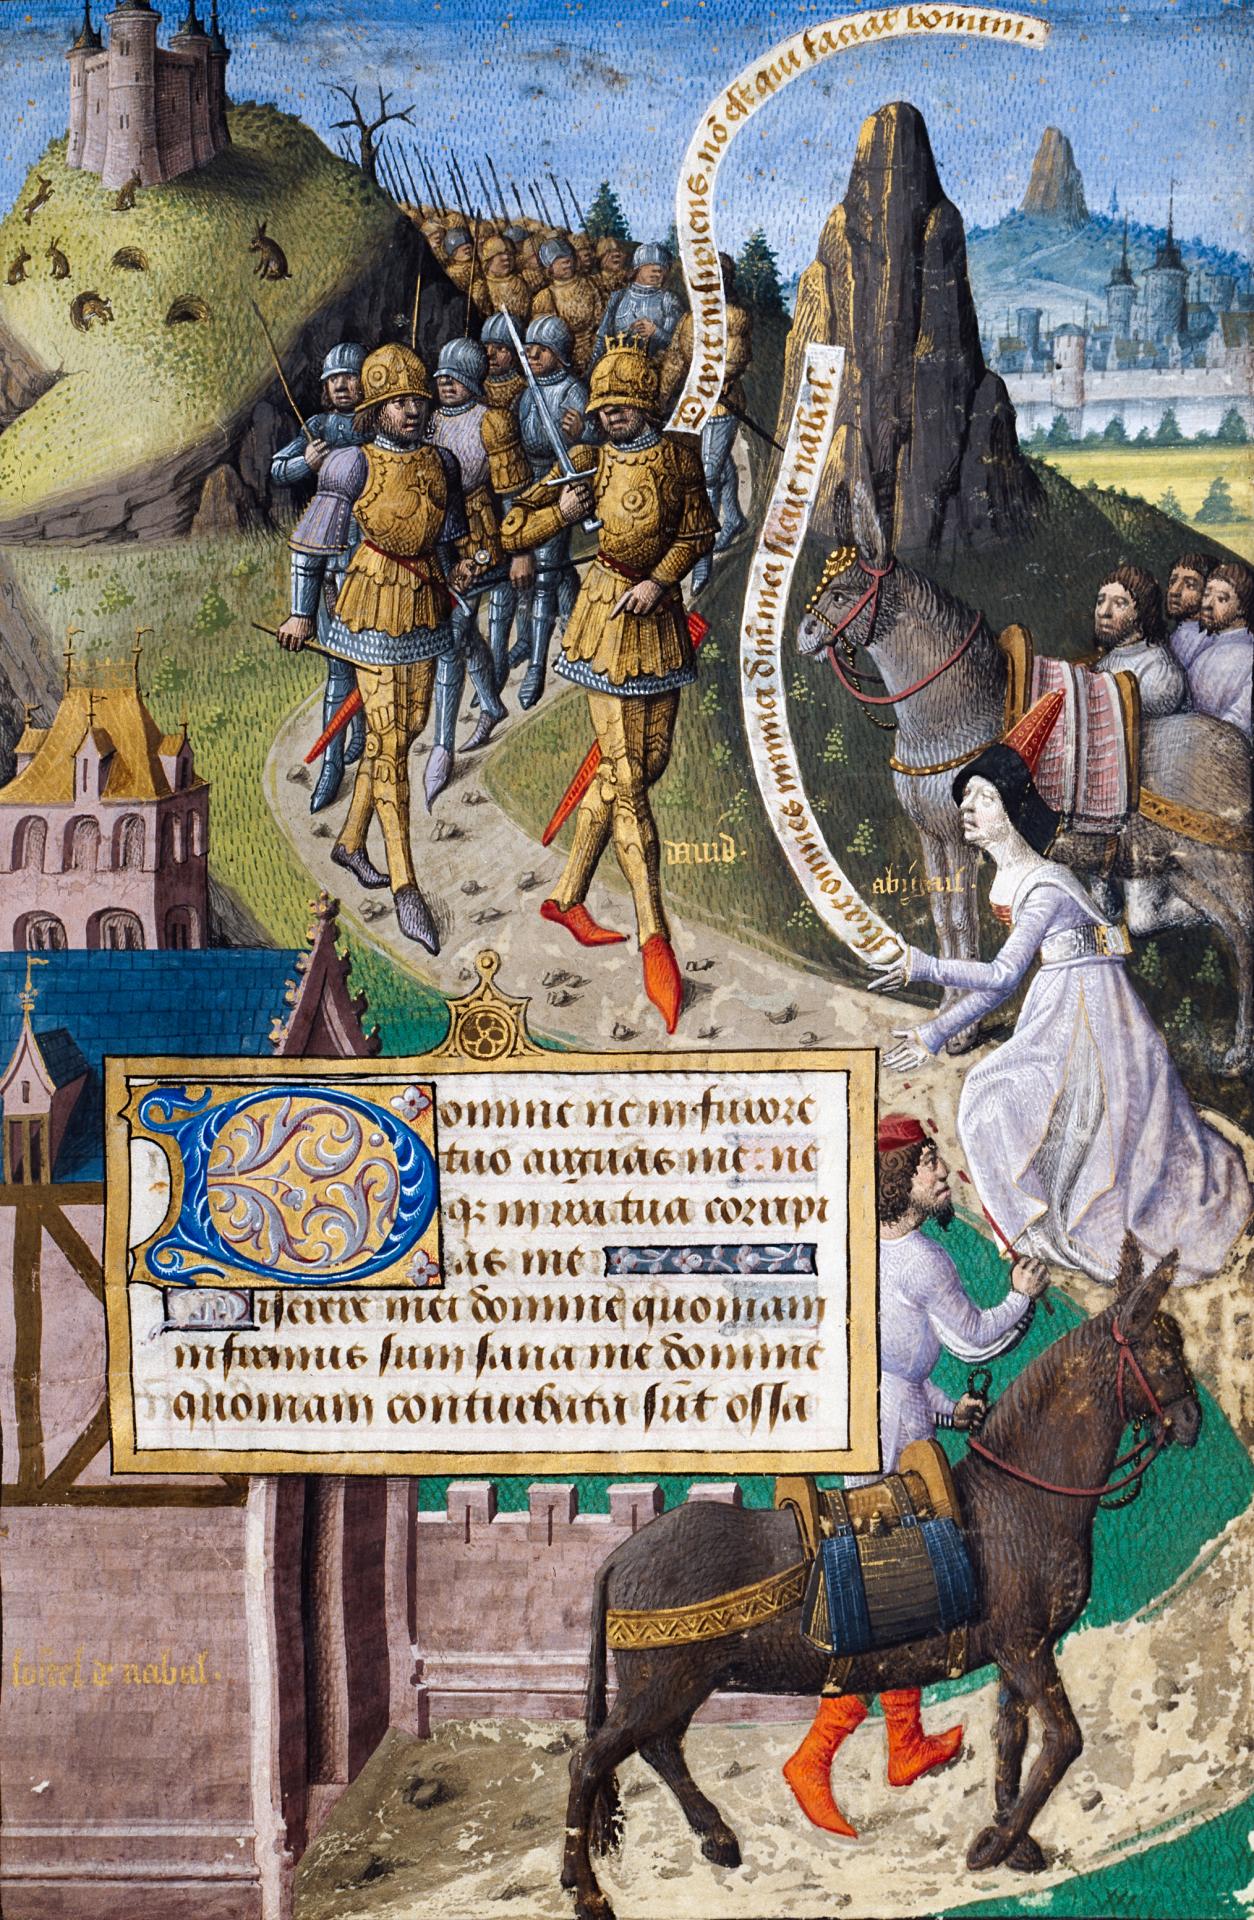 Dixit insipiens. nō est qui faciat bonum.
fiāt omnes inimici dn̄i mei sicut nabal.
dauid.
abigail.
Domine ne in furore
tuo arguas me: ne
qȝ in ira tua coripi
as me
Miserere mei domine quoniam
infirmus sum sana me domine
quoniam conturbata sūt ossa
lostel de nabal.